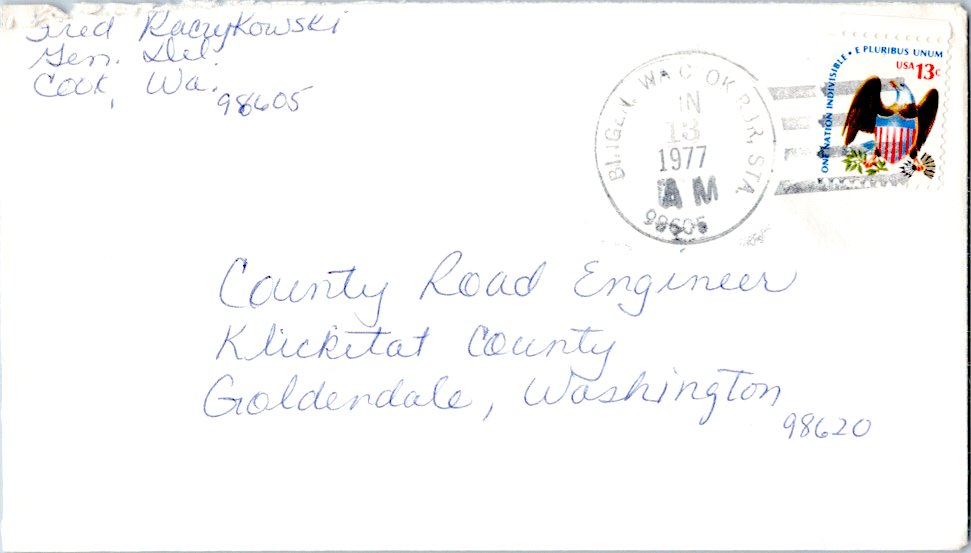 Fred Raczykowski
Gen. Del.
Cook, Wa.
98605
BINGEN, WA COOK RUR. STA.
13
1977
AM
98605
ONE NATION INDIVISIBLE • E PLURIBUS UNUM
USA 13c
County Road Engineer
Klickitat County
Goldendale, Washington
98620